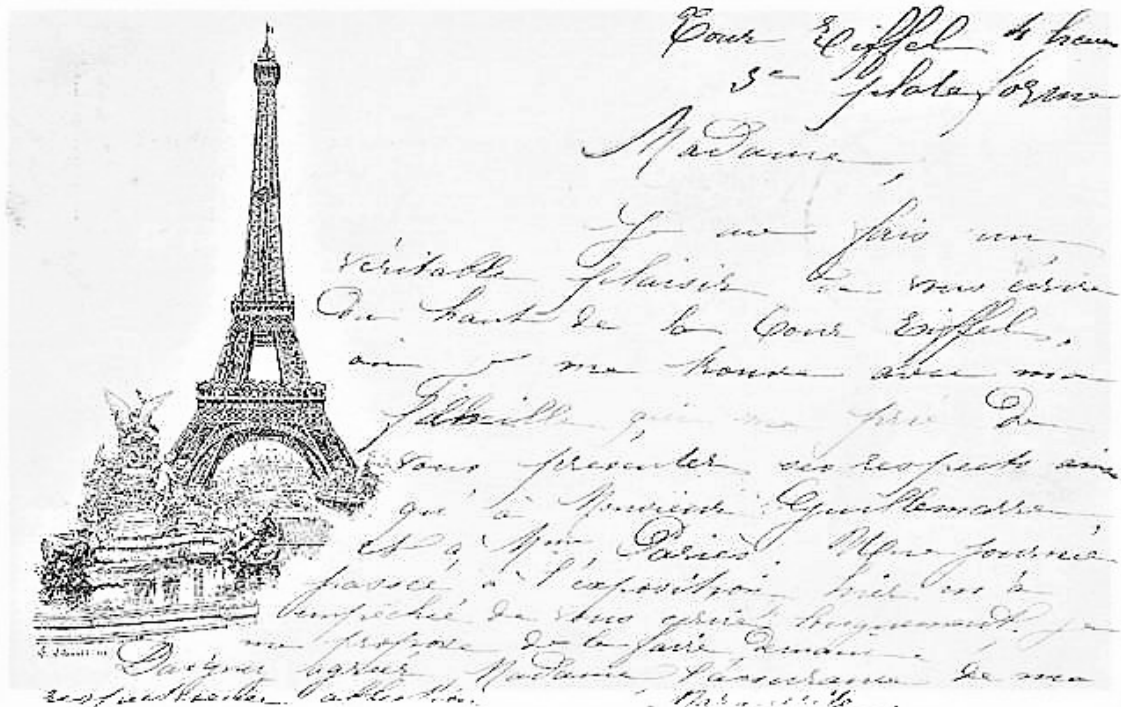 Tour Eiffel 4 heures
3e plateforme
Madame,
Je me fais un
véritable plaisir de vous écrire
du haut de la Tour Eiffel,
où je me trouve avec ma
famille qui me prie de
vous présenter ses respects ainsi
qu'à Monsieur
et à Mme Une journée
passée à l'exposition hier m'a
empêché de vous écrire longuement. Je
me propose de le faire demain.
Daignez agréer Madame l'assurance de ma
respectueuse affection.